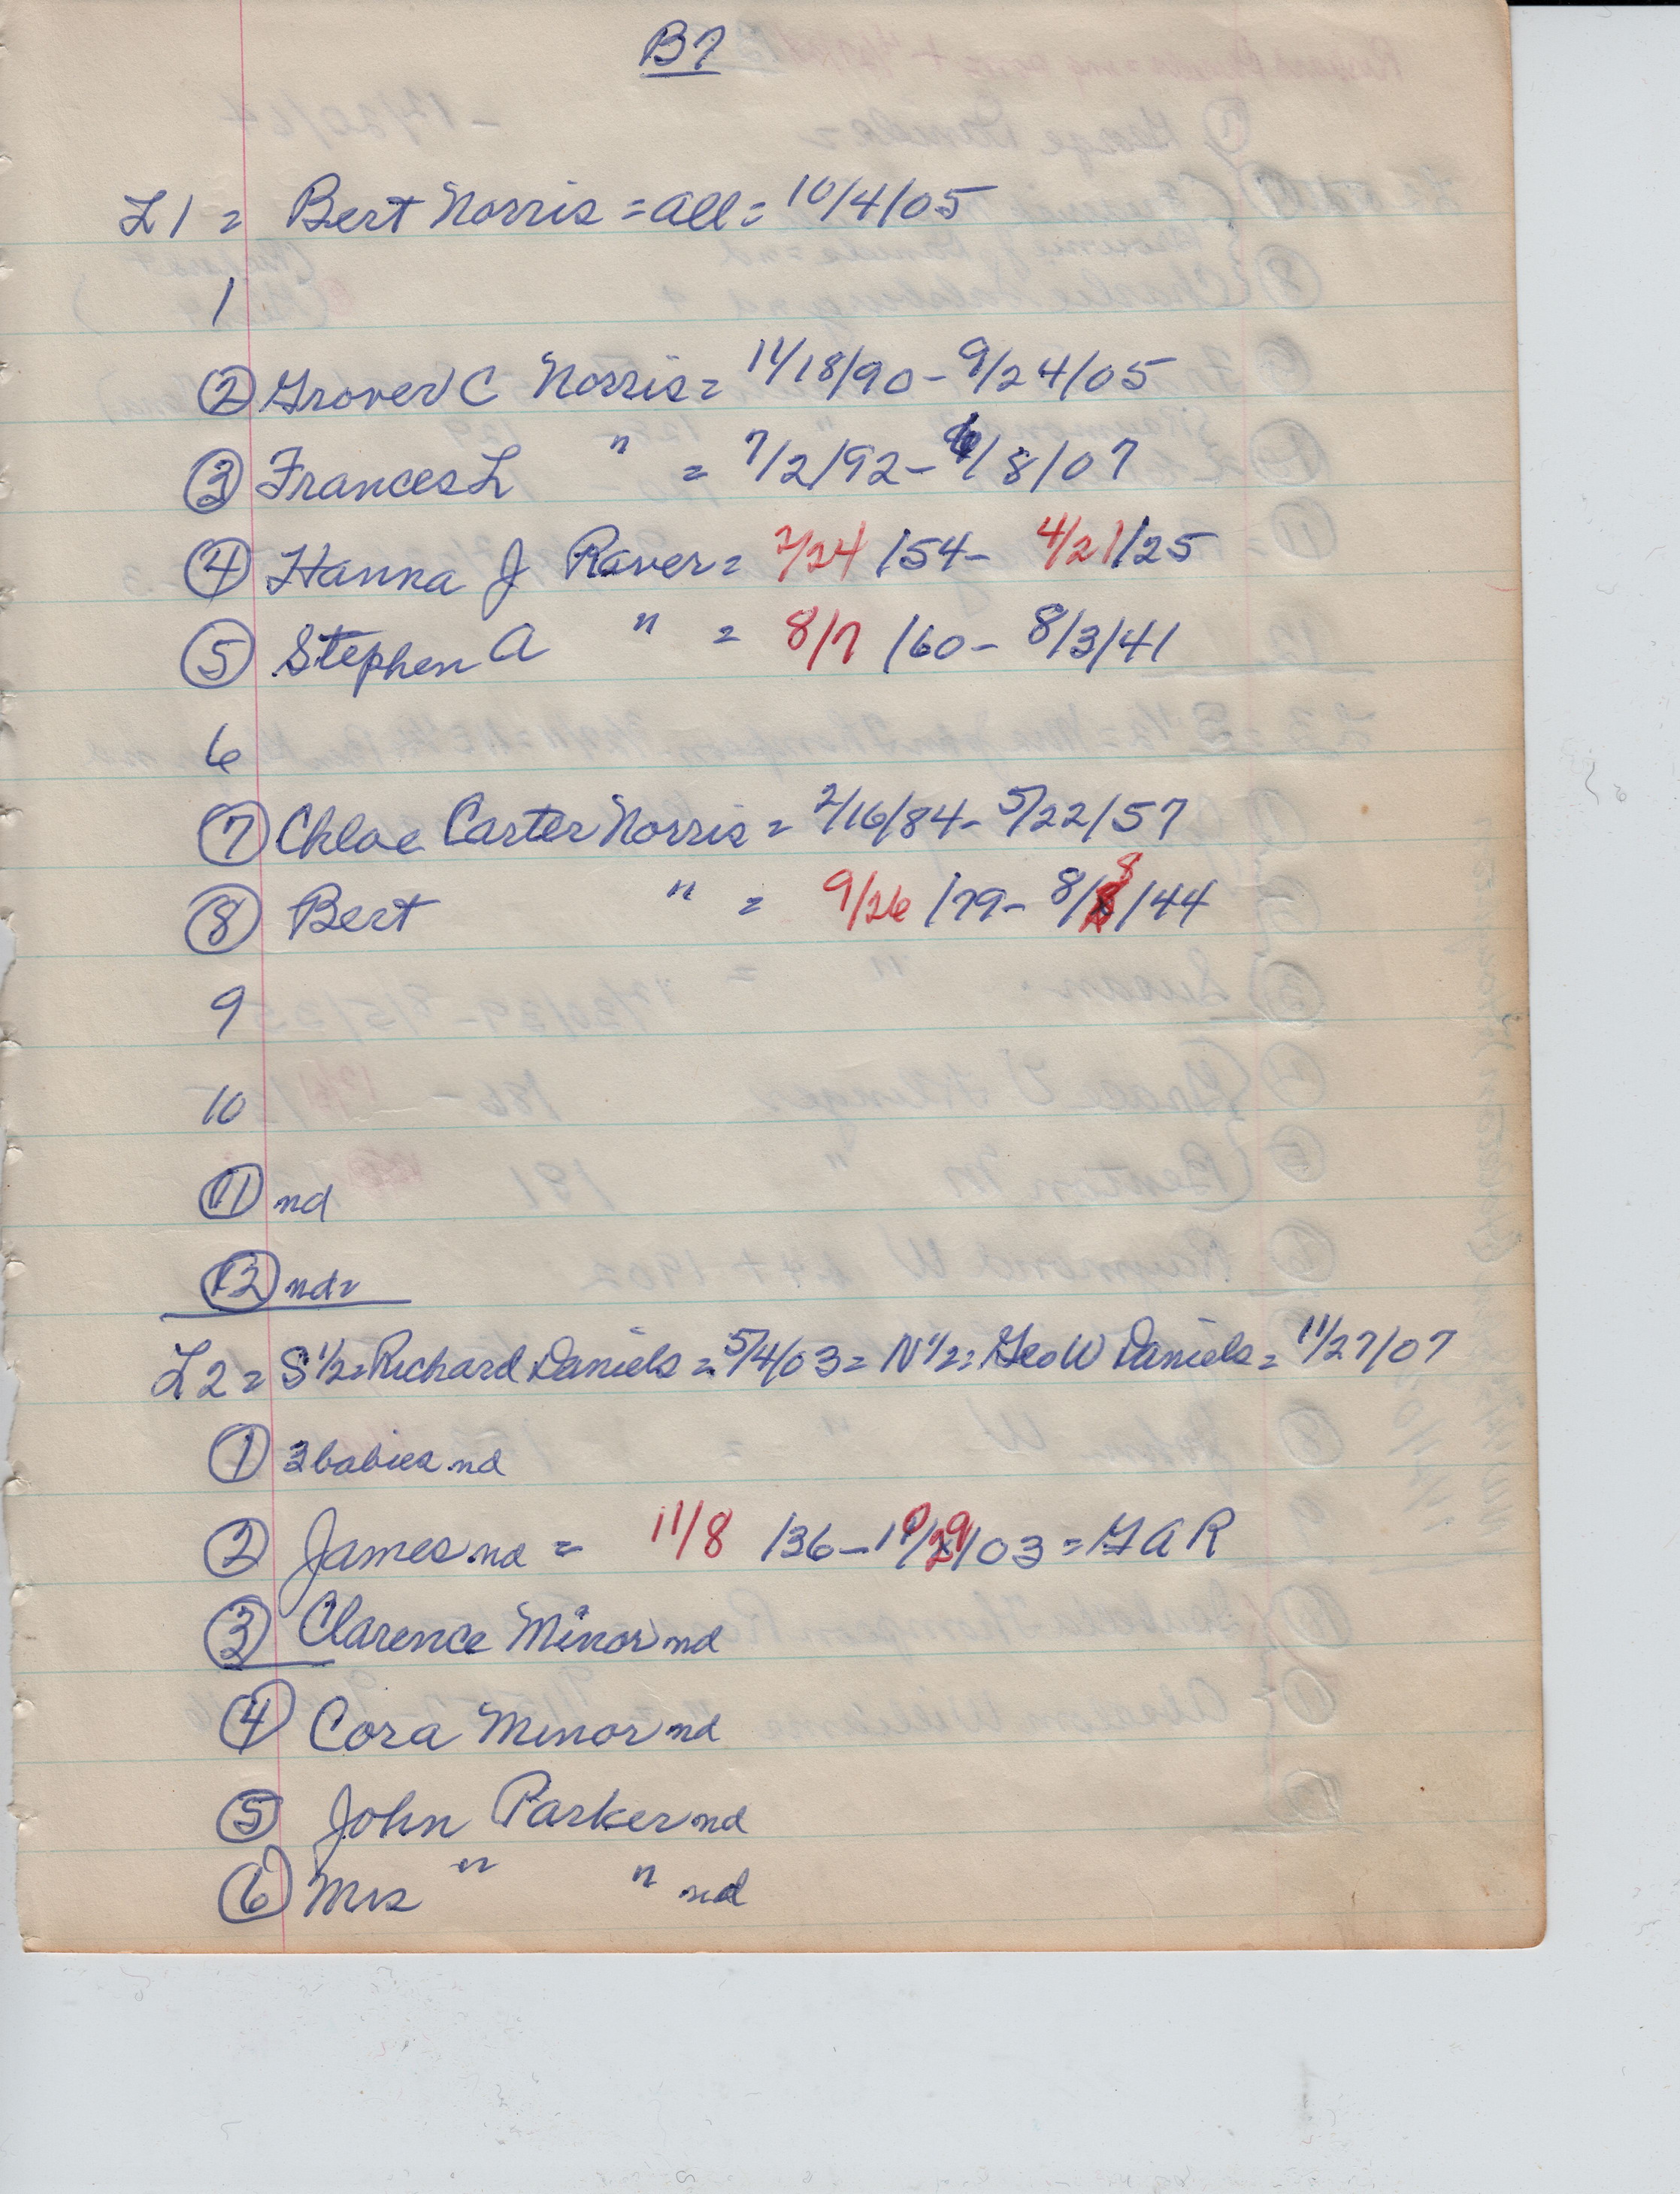 B7
L1 = Bert Norris = all = 10/4/05
1
② Grover C Norris = 11/18/90 - 9/24/05
③ Frances L " = 7/2/92 - /8/07
④ Hanna J Raver = 2/24/54 - 4/21/25
⑤ Stephen A " = 8/7/60 - 8/3/41
6
⑦ Chloe Carter Norris = 2/16/84 - 5/22/57
⑧ Bert " = 9/26/79 - 8/8/44
9
10
⑪ nd
⑫ nd =
L2 = S 1/2 = Richard Daniels = 5/4/03 = N 1/2 = Geo W Daniels = 11/27/07
① 3 babies nd
② James nd = 11/8/36 - 10/29/03 = GAR
③ Clarence Minor nd
④ Cora Minor nd
⑤ John Parker nd
⑥ Mrs " " nd